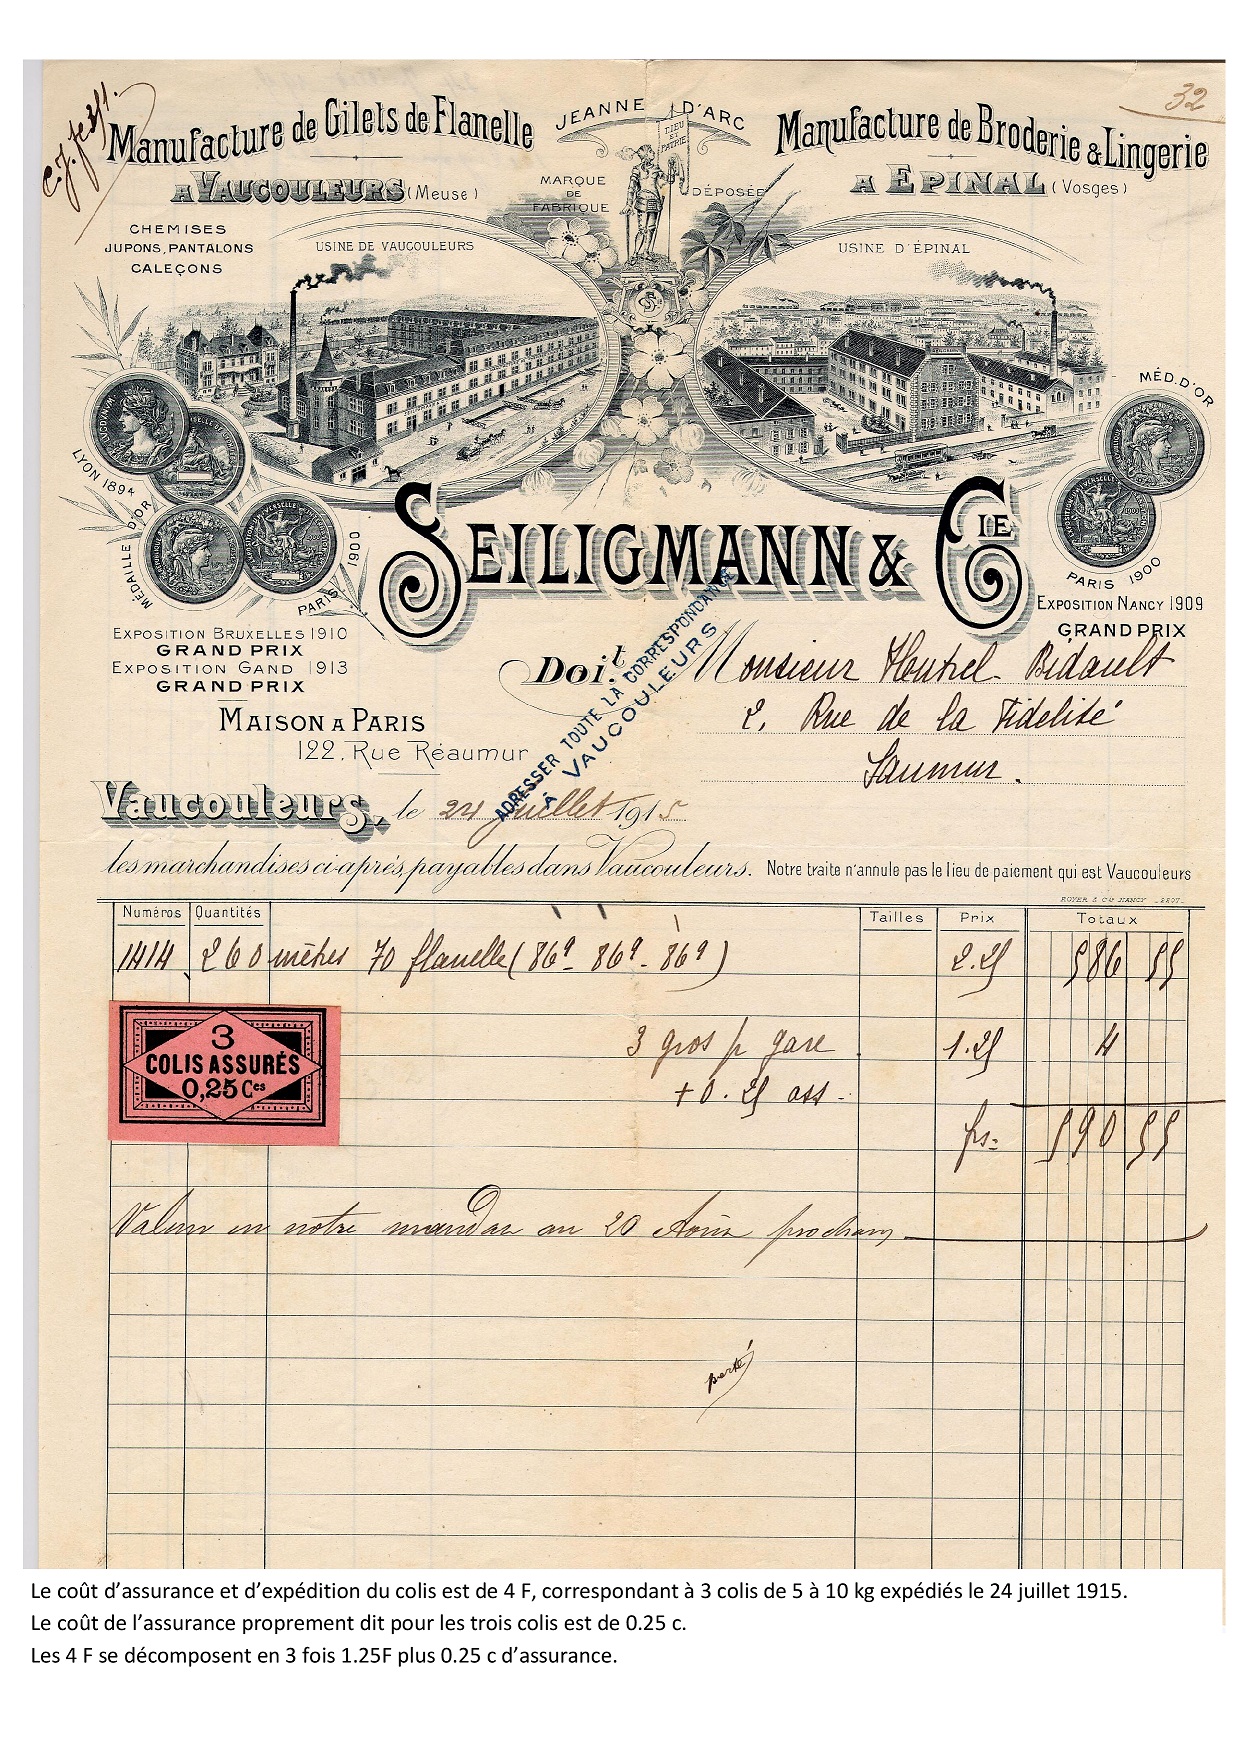 32
Manufacture de Gilets de Flanelle
A VAUCOULEURS (Meuse)
CHEMISES
JUPONS, PANTALONS
CALEÇONS
JEANNE D'ARC
DIEU ET PATRIE
MARQUE DE FABRIQUE
DÉPOSÉE
Manufacture de Broderie & Lingerie
A EPINAL (Vosges)
USINE DE VAUCOULEURS
USINE D'ÉPINAL
LYON 1894
MÉDAILLE D'OR
PARIS 1900
MÉD. D'OR
PARIS 1900
SEILIGMANN & CIE
EXPOSITION BRUXELLES 1910
GRAND PRIX
EXPOSITION GAND 1913
GRAND PRIX
EXPOSITION NANCY 1909
GRAND PRIX
MAISON A PARIS
122, Rue Réaumur
ADRESSER TOUTE LA CORRESPONDANCE
À VAUCOULEURS
Doit Monsieur Houtrel-Bidault
2, Rue de la Fidélité
Saumur.
Vaucouleurs, le 24 juillet 1915
les marchandises ci-après, payables dans Vaucouleurs. Notre traite n'annule pas le lieu de paiement qui est Vaucouleurs
ROYER & Cie NANCY
Numéros Quantités Tailles Prix Totaux
1414 260 mètres 70 flanelle (869 - 869 - 869) 2.25 586 55
3 gros p gare 1.25 4
+ 0.25 ass -
frs = 590 55
3
COLIS ASSURÉS
0,25 Ces
Valeur en notre mandat au 20 Août prochain
porté
Le coût d'assurance et d'expédition du colis est de 4 F, correspondant à 3 colis de 5 à 10 kg expédiés le 24 juillet 1915.
Le coût de l'assurance proprement dit pour les trois colis est de 0.25 c.
Les 4 F se décomposent en 3 fois 1.25F plus 0.25 c d'assurance.